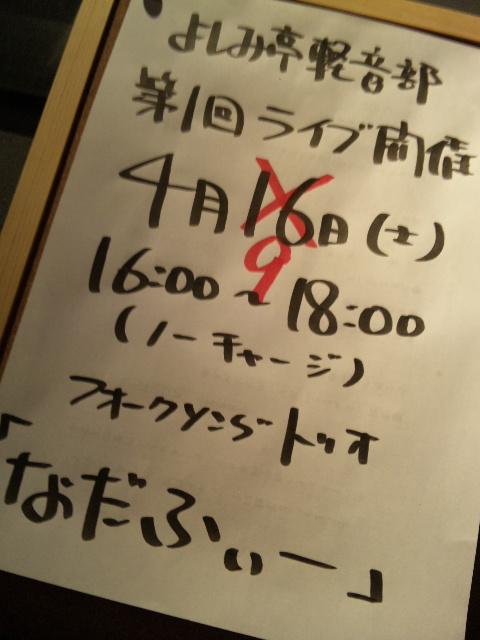 よしみ亭軽音部
第1回ライブ開催
4月16日(土)
9
16:00~18:00
(ノーチャージ)
フォークソングトリオ
「なおだふぃー」